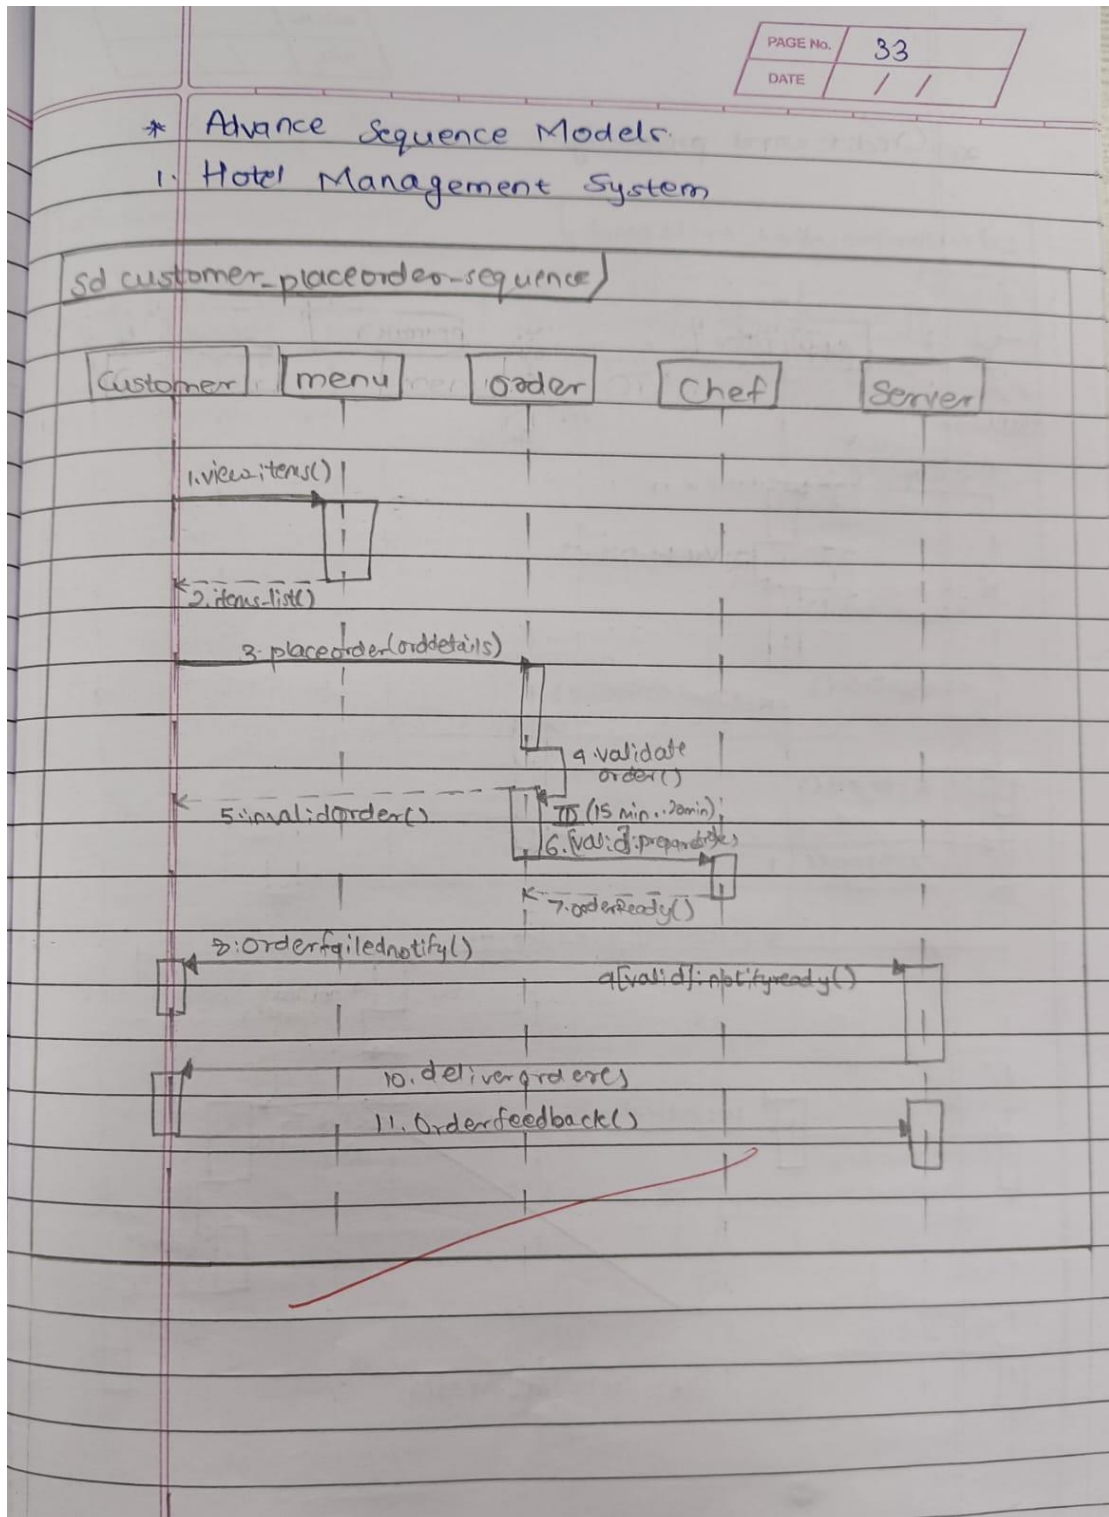 PAGE No. 33
DATE / /
* Advance Sequence Models.
1. Hotel Management System
sd customer_placeorder-sequence
Customer menu order Chef Server
1.view-items()
2.items-list()
3. placeorder(orddetails)
4.validate
order()
5:invalidorder()
(15 min..20min)
6.[valid]:
7.orderReady()
8:Orderfailednotify()
9[valid]:notifyready()
10. deliverorder()
11. Orderfeedback()